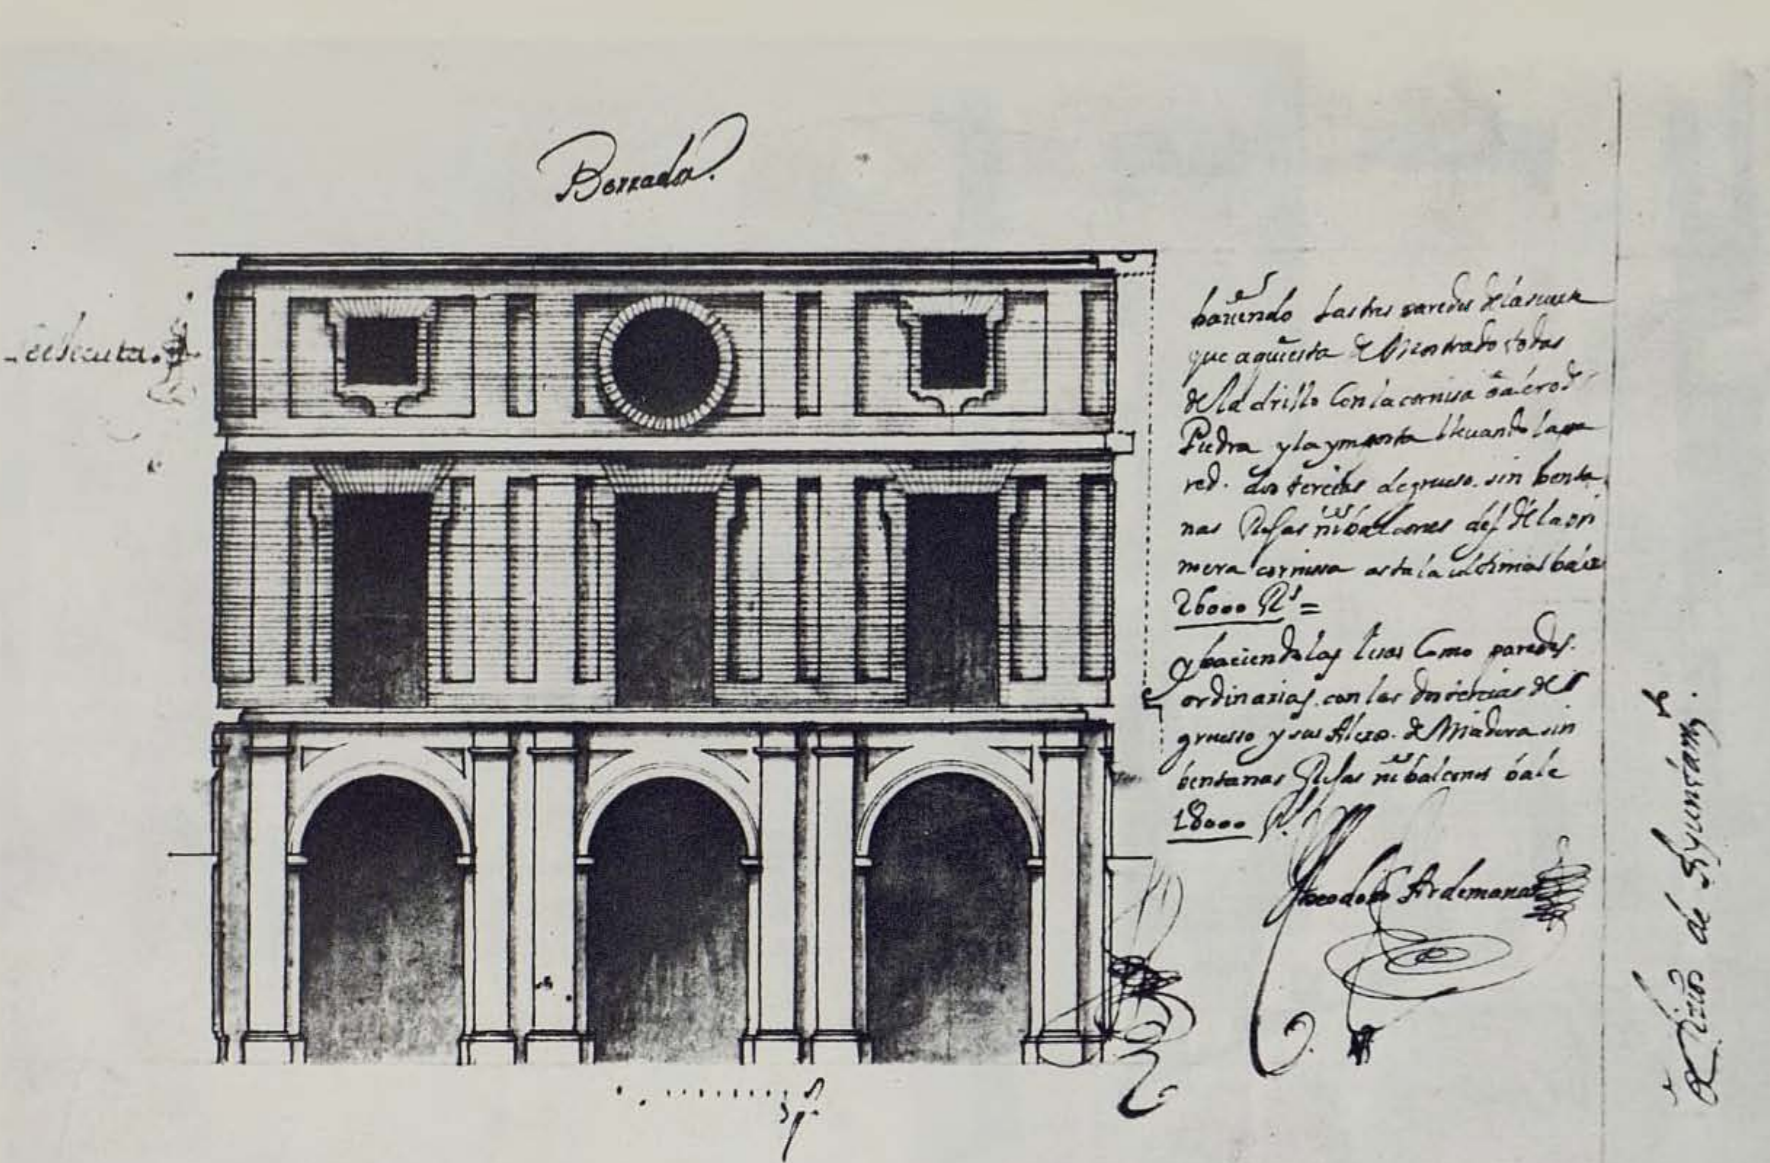 Borrador.
haciendo las tres paredes de la
que aqui esta demostrado todas
de ladrillo Con la cornisa
Piedra y la ymposta lleuando la pa
red. dos tercias de grueso. sin benta
nas Rejas ni balcones des de la pri
mera cornisa asta la ultima bale
26000 Rs =
y haciendolas lisas Como paredes.
ordinarias. con las dos tercias de
grueso y sus Alero. de Madera sin
bentanas Rejas ni balcones bale
18000 Rs.
Theodoro Ardemans
de